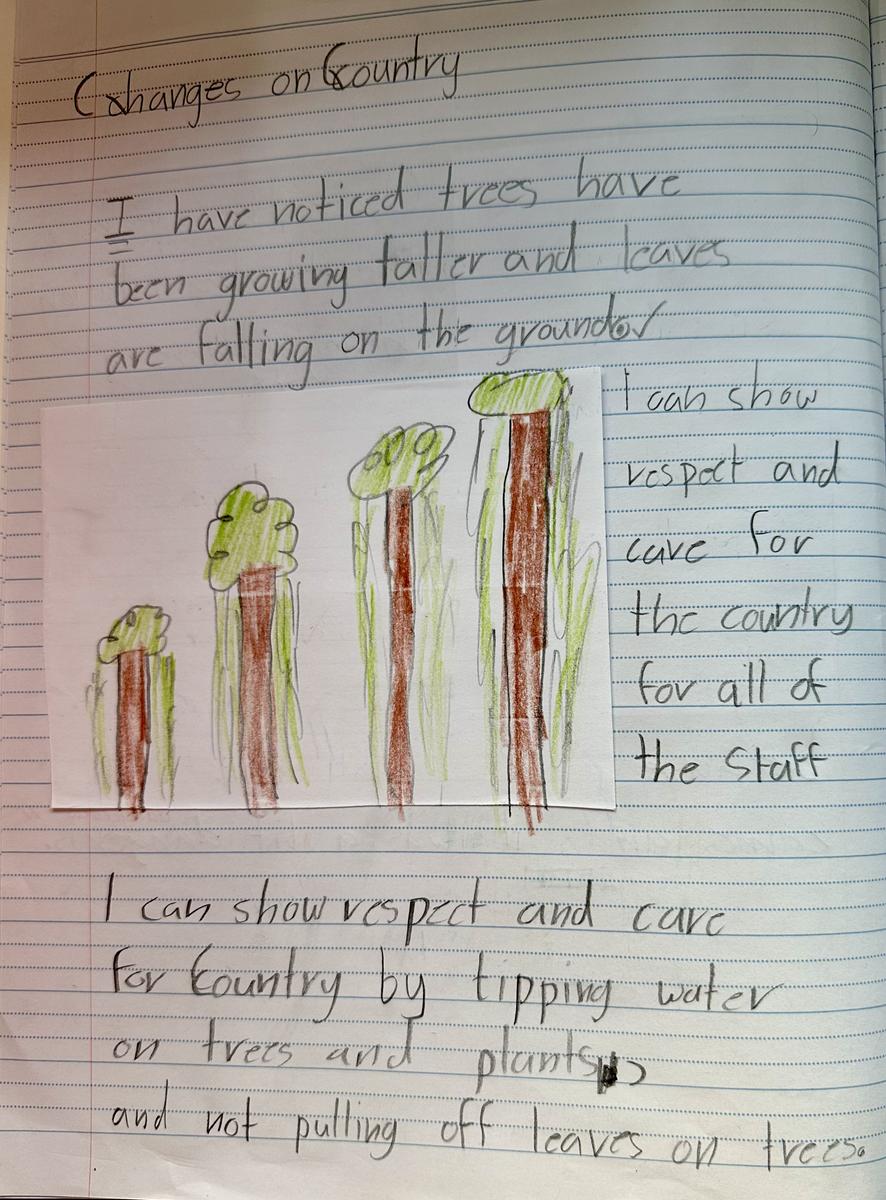 Changes on Country
I have noticed trees have
been growing taller and leaves
are falling on the ground.
I can show
respect and
care for
the country
for all of
the Staff
I can show respect and care
for Country by tipping water
on trees and plants
and not pulling off leaves on trees.